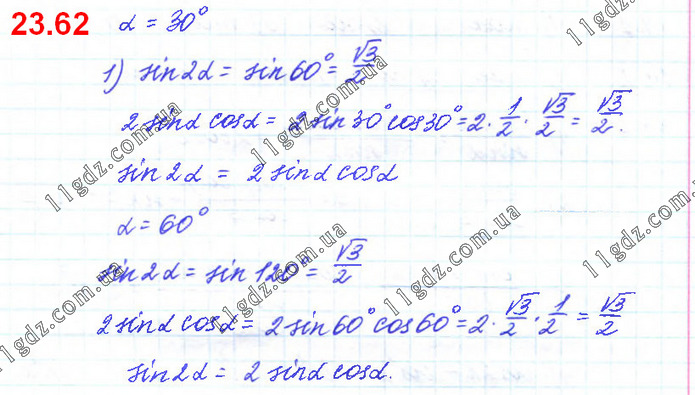 23.62
α = 30°
1) sin2α = sin60° = √3/2
2 sinα cosα = 2 sin30° cos30° = 2 · 1/2 · √3/2 = √3/2.
sin2α = 2 sinα cosα
α = 60°
sin2α = sin120° = √3/2
2 sinα cosα = 2 sin60° cos60° = 2 · √3/2 · 1/2 = √3/2
sin2α = 2 sinα cosα.
11gdz.com.ua
11gdz.com.ua
11gdz.com.ua
11gdz.com.ua
11gdz.com.ua
11gdz.com.ua